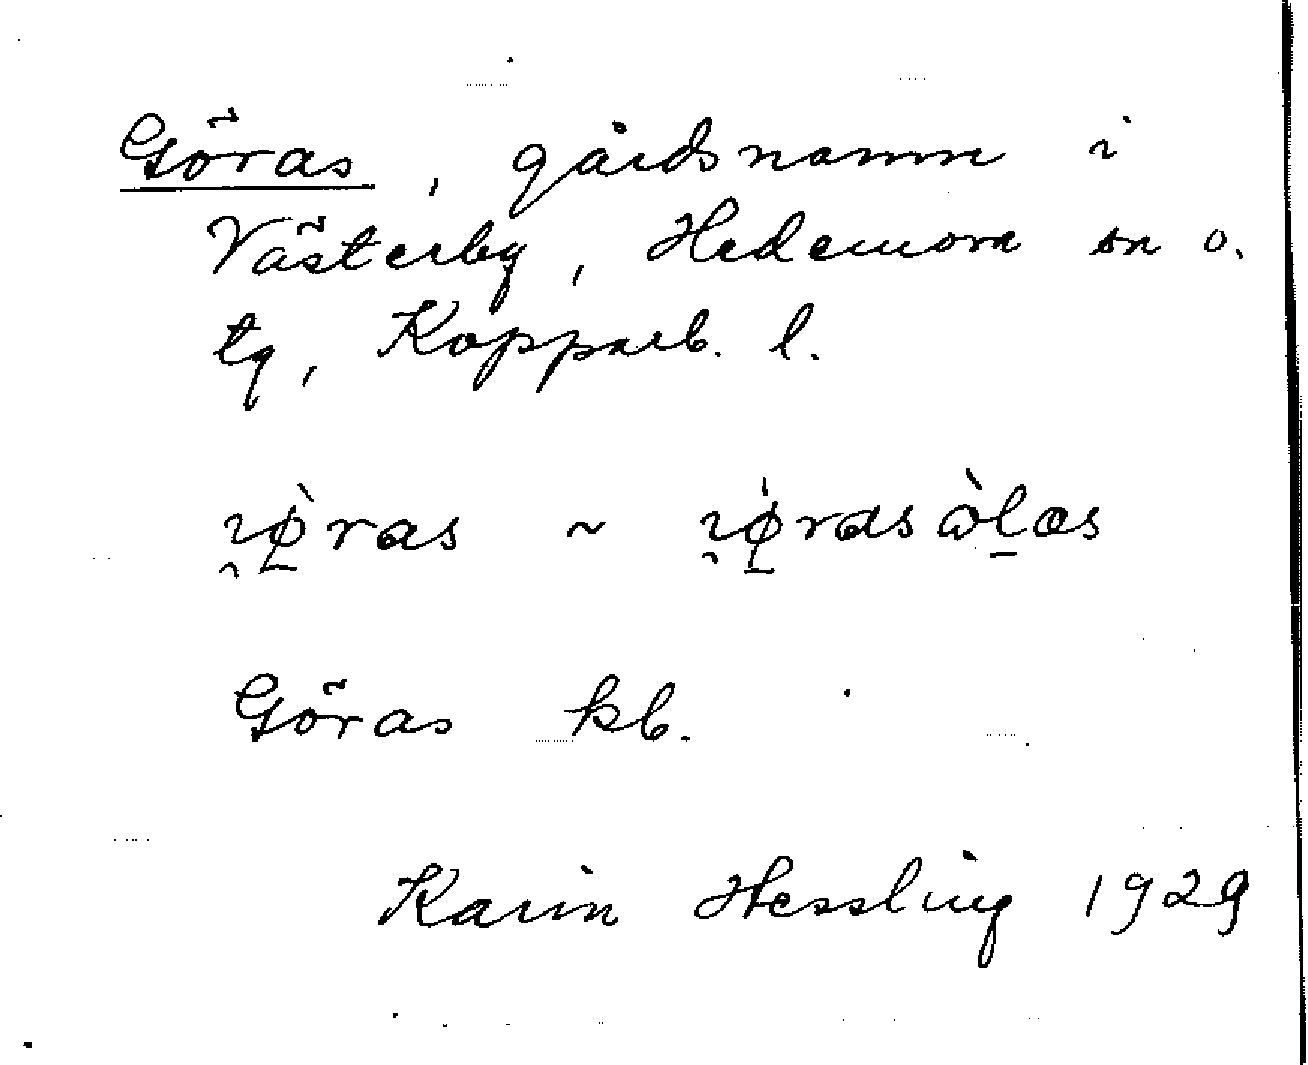 Göras, gårdsnamn i
Västerby, Hedemora sn o.
tg, Kopparb. l.
ɩø̀ras ~ ɩø̍rasòlas
Göras kb.
Karin Hessling 1929